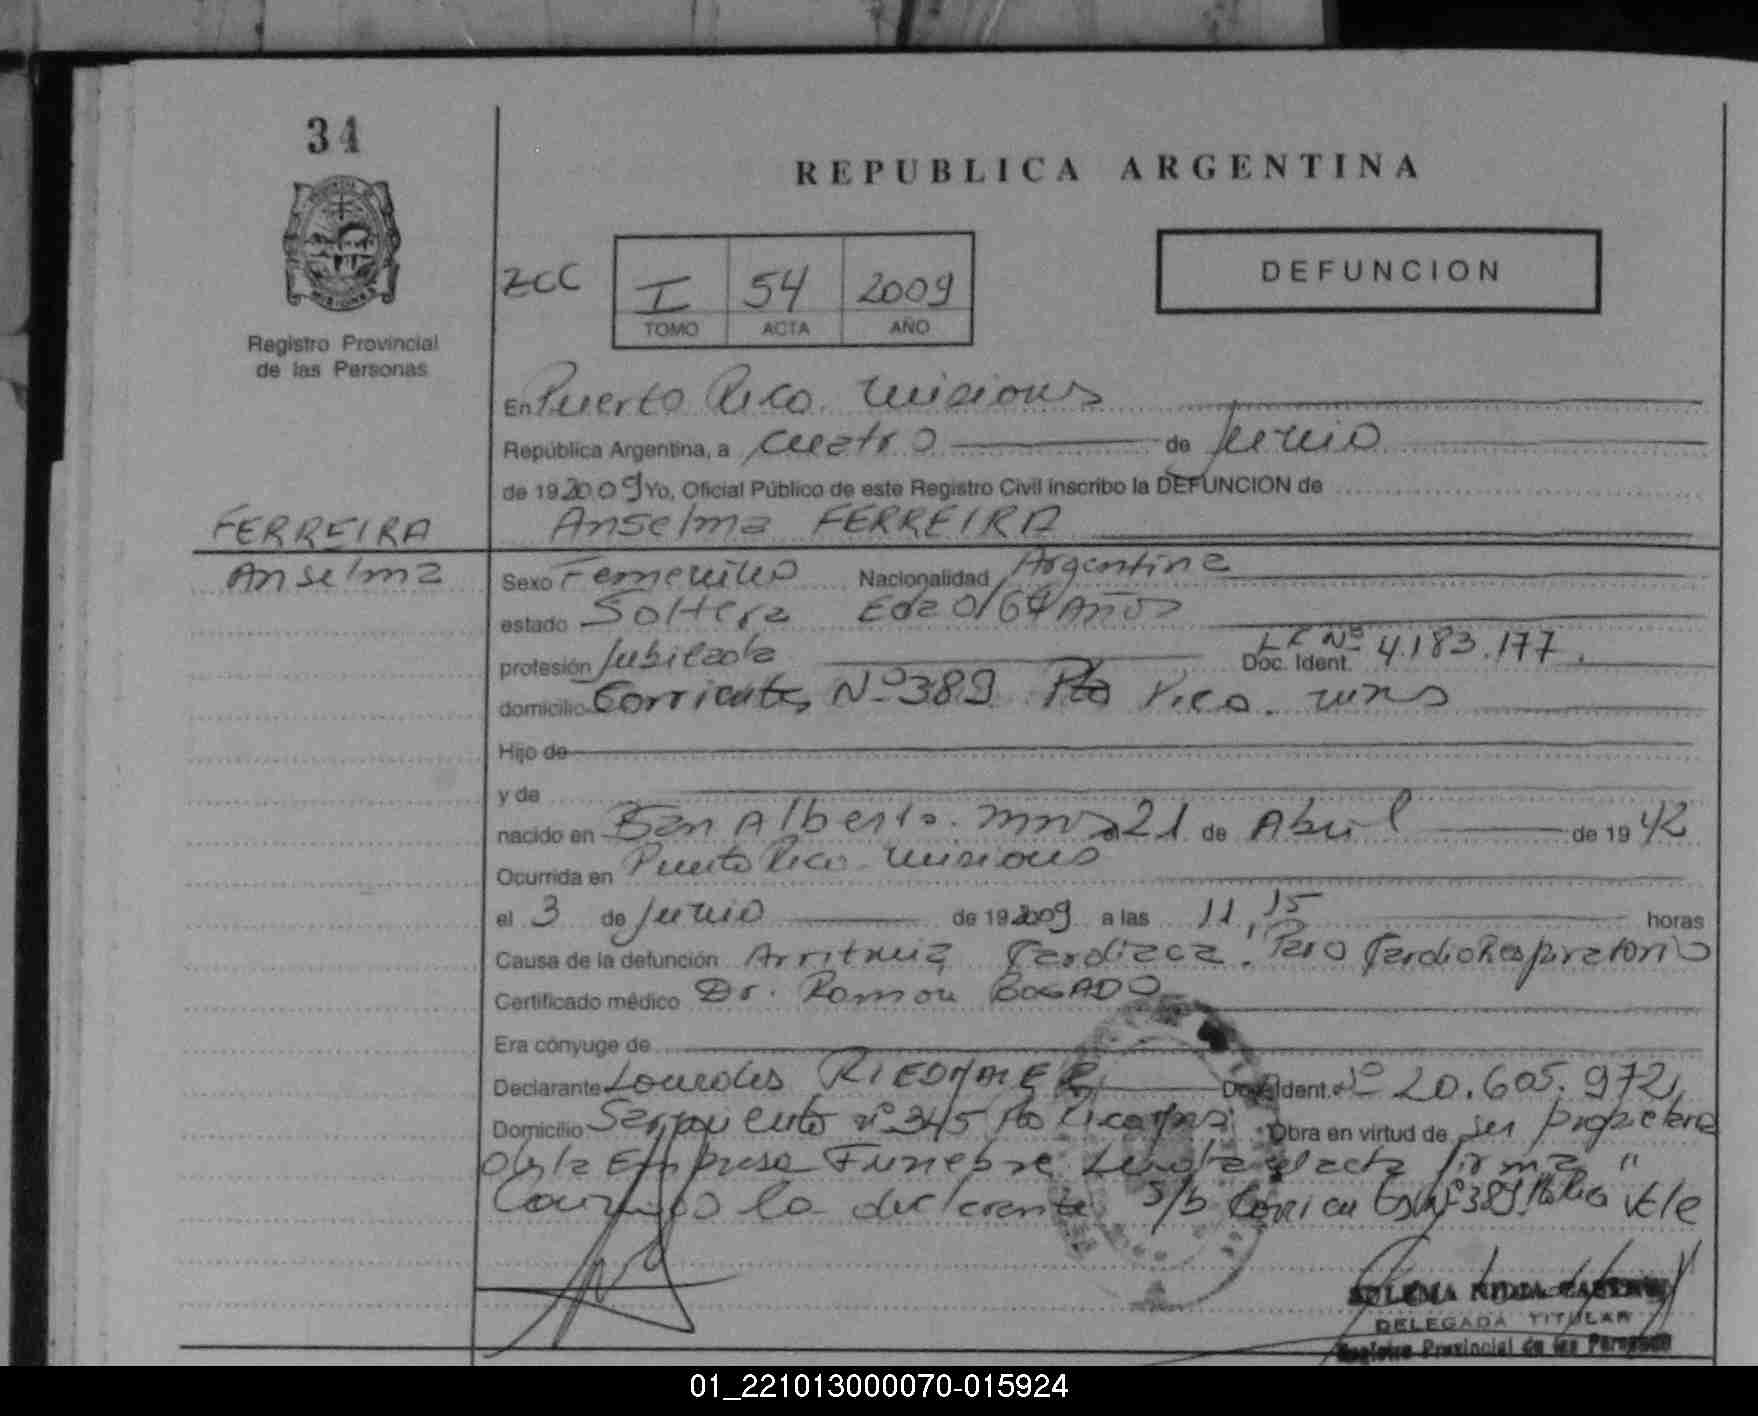 34
REPUBLICA ARGENTINA
MISIONES
ZCC
I 54 2009
TOMO ACTA AÑO
DEFUNCION
Registro Provincial
de las Personas
En Puerto Rico. Misiones
República Argentina, a cuatro de Junio
de 192009 Yo, Oficial Público de este Registro Civil inscribo la DEFUNCION de
FERREIRA
Anselma
Anselma FERREIRA
Sexo Femenino Nacionalidad Argentina
estado Soltera Edad/67 Años
profesión Jubilada Doc. Ident. LC Nº 4.183.177.
domicilio Corrientes Nº 389 Pto Rico. mns
Hijo de
y de
nacido en San Alberto. mns 21 de Abril de 19 42
Ocurrida en Puerto Rico Misiones
el 3 de Junio de 192009 a las 11,15 horas
Causa de la defunción Arritmia Cardiaca. Paro CardioRespiratorio
Certificado médico Dr. Ramon BOGADO
Era cónyuge de
Declarante Lourdes Doc. Ident. Nº 20.605.972
Domicilio Sarmiento nº 345 Pto Rico mns Obra en virtud de ser propietaria
de la Empresa Funebre Leida el acta firma
la declarante s/b Corrientes Nº 389 Pto Rico Vale
DELEGADA TITULAR
Registro Provincial de las Personas
01_221013000070-015924